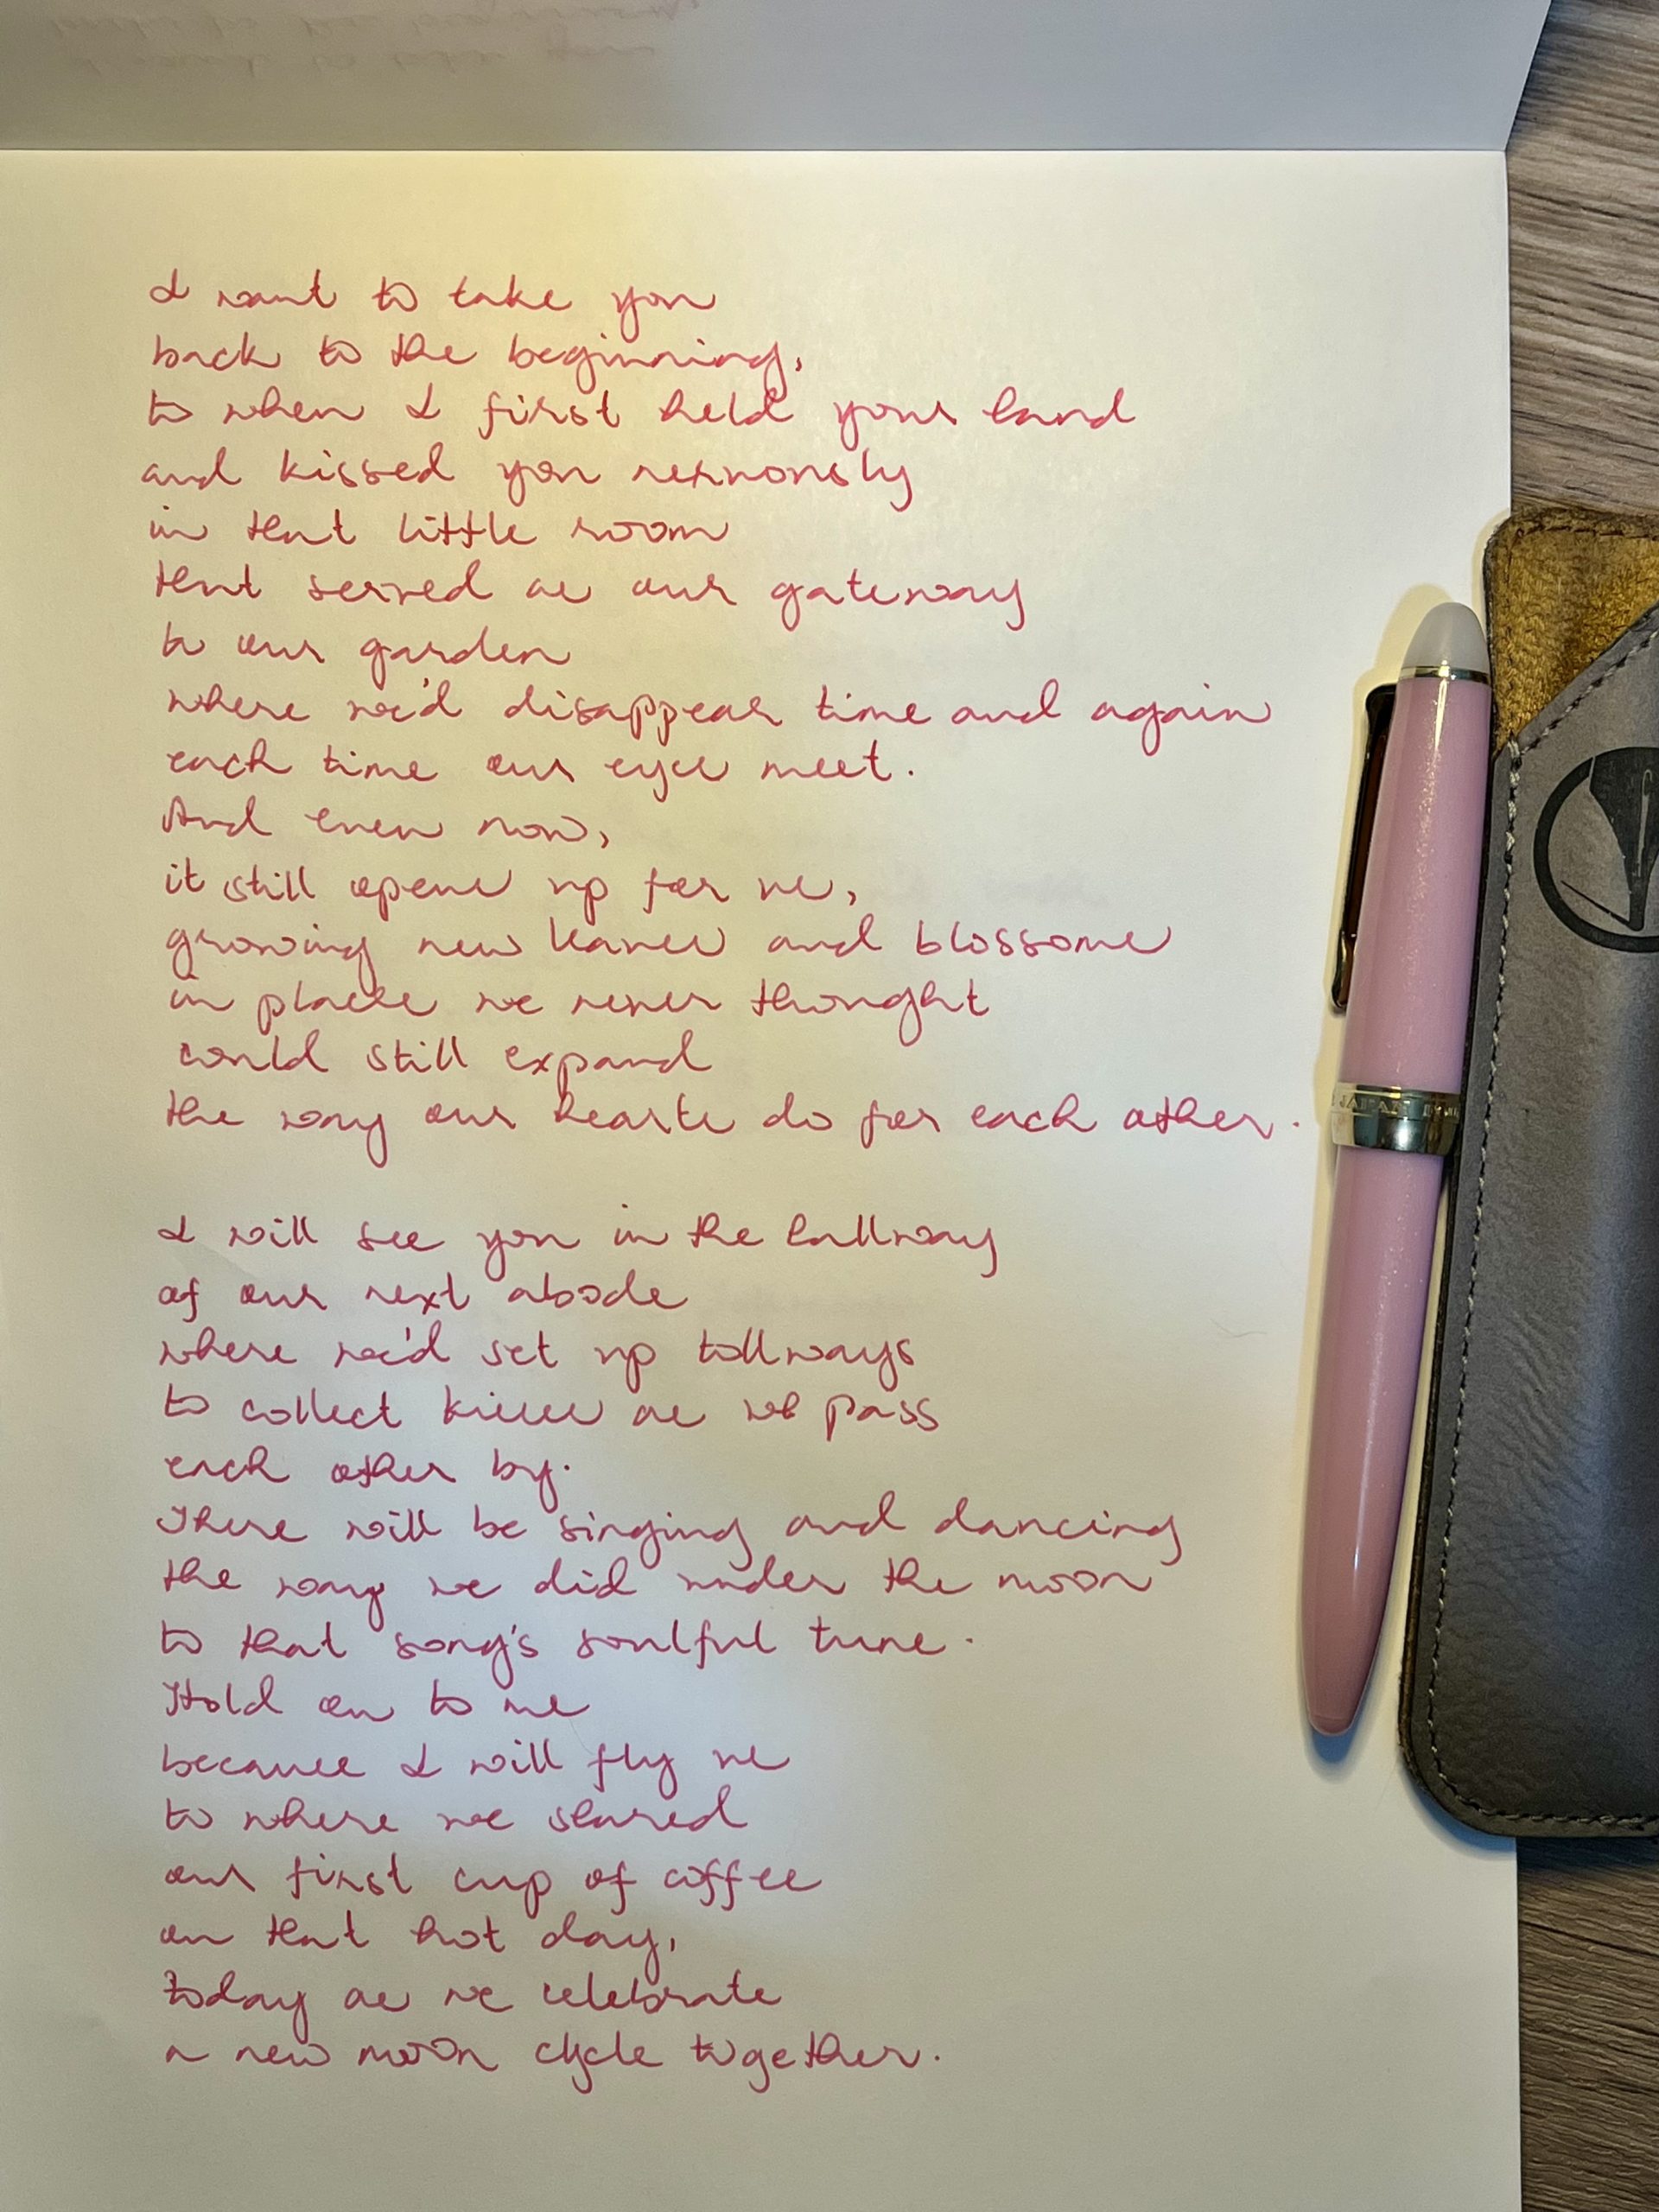 I want to take you
back to the beginning,
to when I first held your hand
and kissed you nervously
in that little room
that served as our gateway
to our garden
where we'd disappear time and again
each time our eyes meet.
And even now,
it still opens up for us,
growing new leaves and blossoms
in places we never thought
could still expand
the way our hearts do for each other.
I will see you in the hallway
of our next abode
where we'd set up tollways
to collect kisses as we pass
each other by.
There will be singing and dancing
the way we did under the moon
to that song's soulful tune.
Hold on to me
because I will fly us
to where we shared
our first cup of coffee
on that hot day,
today as we celebrate
a new moon cycle together.
JAPAN